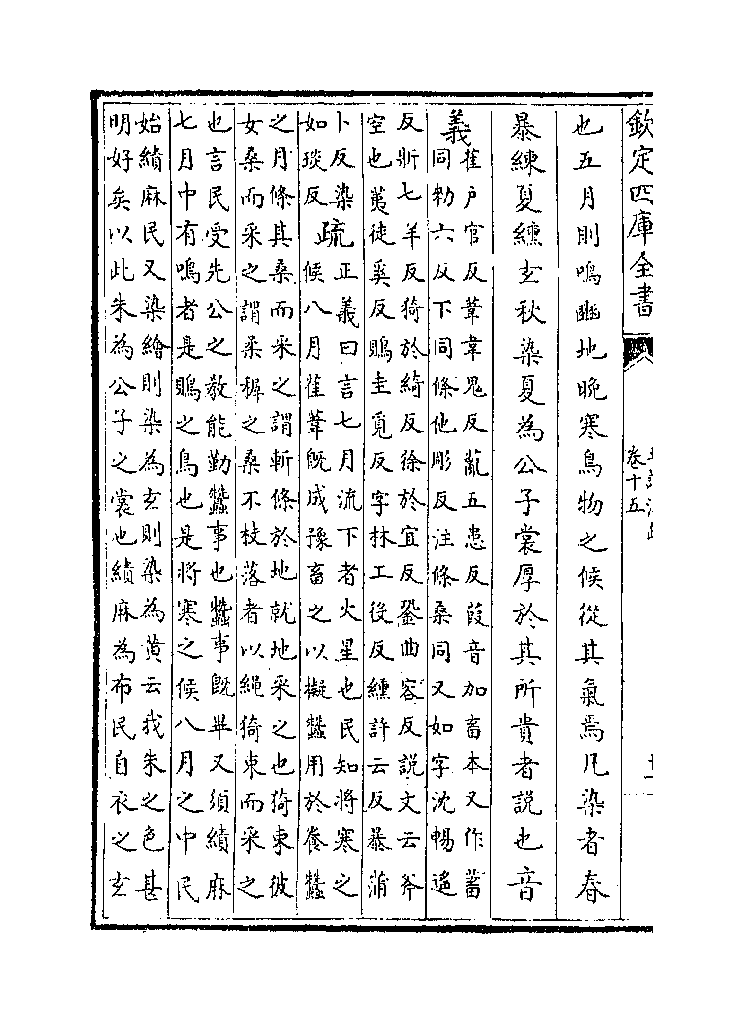 欽定四庫全書
卷十五
也五月則鳴豳地晚寒鳥物之候從其氣焉凡染者春
暴練夏纁玄秋染夏為公子裳厚於其所貴者説也音
義
萑户官反葦韋鬼反薍五患反葭音加畜本又作蓄
同勑六反下同條他彫反注條桑同又如字沈暢遥
反斨七羊反猗於綺反徐於宜反銎曲容反説文云斧
空也荑徒奚反鵙圭覓反字林工役反纁許云反暴蒲
卜反染
如琰反
疏
正義曰言七月流下者火星也民知將寒之
候八月萑葦既成豫畜之以擬蠶用於養蠶
之月條其桑而采之謂斬條於地就地采之也猗束彼
女桑而采之謂柔穉之桑不枝落者以繩猗束而采之
也言民受先公之教能勤蠶事也蠶事既畢又須績麻
七月中有鳴者是鵙之鳥也是將寒之候八月之中民
始績麻民又染繒則染為玄則染為黄云我朱之色甚
明好矣以此朱為公子之裳也績麻為布民自衣之玄